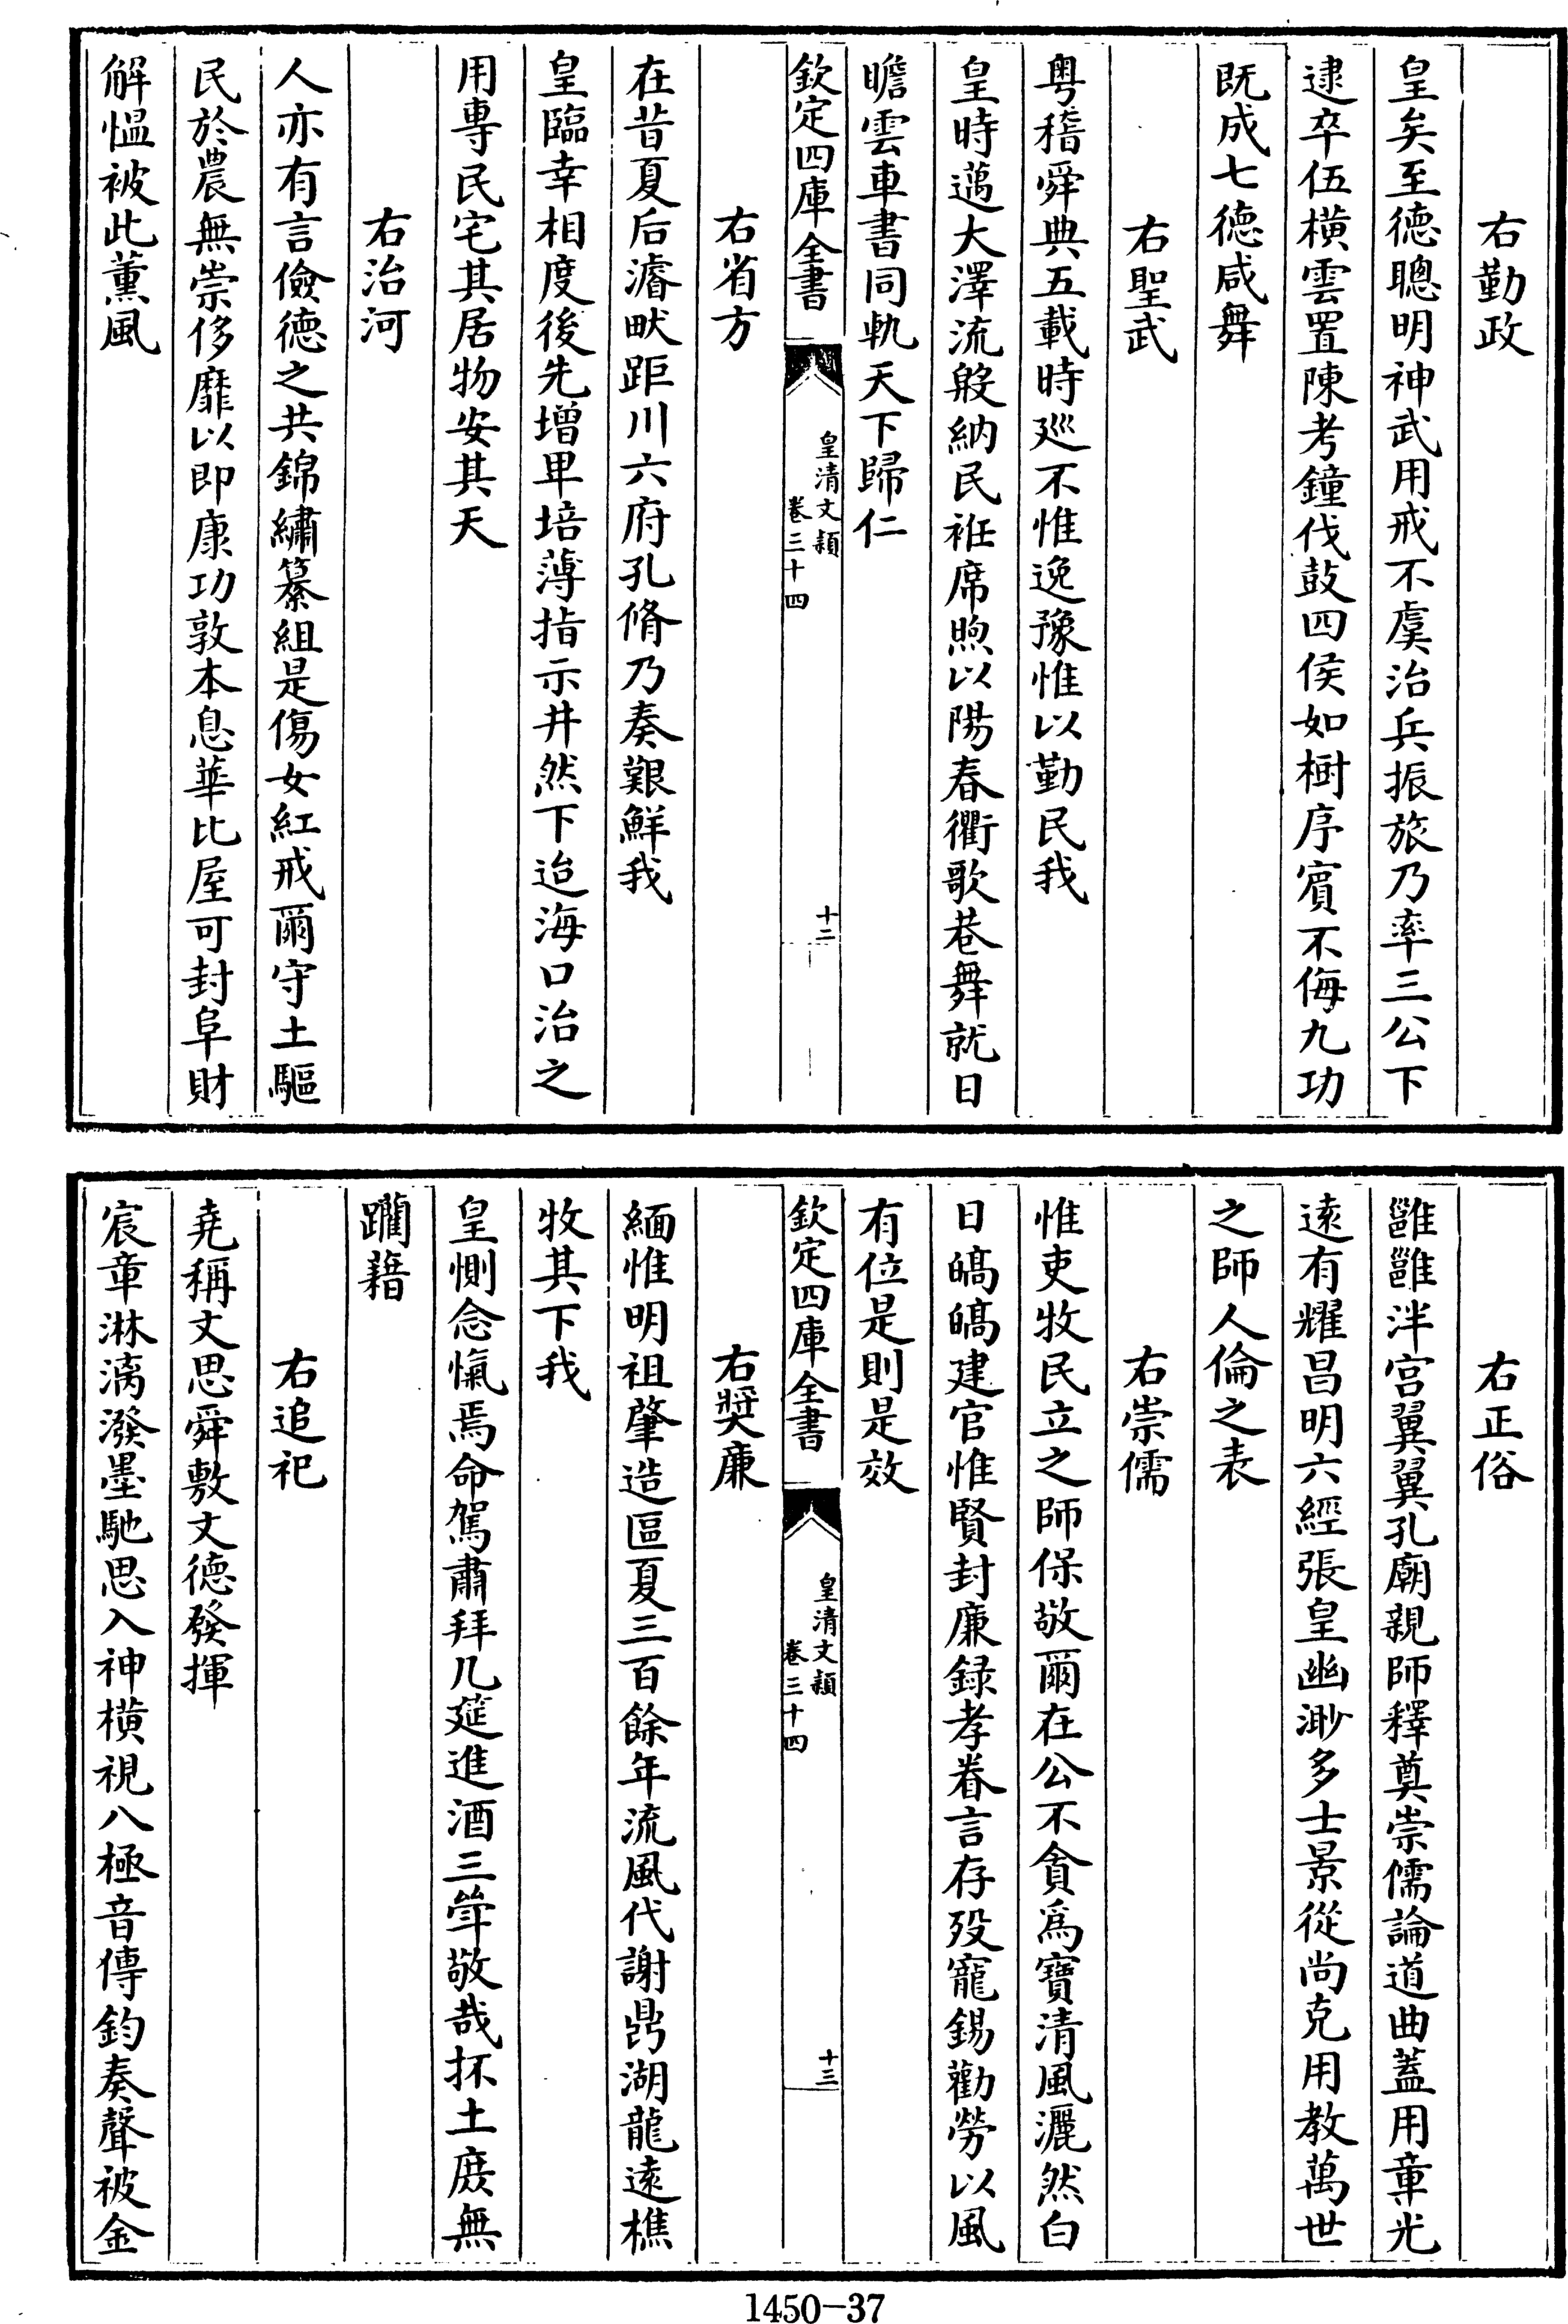 右勤政
皇矣至德聰明神武用戒不虞治兵振旅乃率三公下
逮卒伍橫雲置陳考鐘伐鼓四侯如樹序賓不侮九功
既成七德咸舞
右聖武
粤稽舜典五載時廵不惟逸豫惟以勤民我
皇時邁大澤流般納民袵席煦以陽春衢歌巷舞就日
瞻雲車書同軌天下歸仁
欽定四庫全書
皇清文頴
卷三十四
十二
右省方
在昔夏后濬畎距川六府孔脩乃奏艱鮮我
皇臨幸相度後先增卑培薄指示井然下迨海口治之
用專民宅其居物安其天
右治河
人亦有言儉德之共錦繡纂組是傷女紅戒爾守土驅
民於農無崇侈靡以即康功敦本息華比屋可封阜財
解愠被此薰風
右正俗
雝雝泮宫翼翼孔廟親師釋奠崇儒論道曲蓋用章光
遠有耀昌明六經張皇幽渺多士景從尚克用教萬世
之師人倫之表
右崇儒
惟吏牧民立之師保敬爾在公不貪為寶清風灑然白
日皜皜建官惟賢封廉録孝眷言存殁寵錫勸勞以風
有位是則是效
欽定四庫全書
皇清文頴
卷三十四
十三
右奬廉
緬惟明祖肇造區夏三百餘年流風代謝鼎湖龍遠樵
牧其下我
皇惻念愾焉命駕肅拜几筵進酒三斝敬哉抔土庶無
躙藉
右追祀
堯稱文思舜敷文德發揮
宸章淋漓潑墨馳思入神橫視八極音傳鈞奏聲被金
1450-37